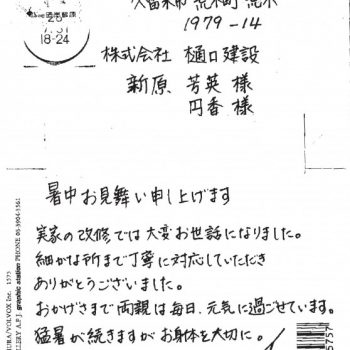 久留米市 荒木町 荒木
1979-14
株式会社 樋口建設
新原 芳英 様
円香 様
18-24
暑中お見舞い申し上げます
実家の改修では大変お世話になりました。
細かな所まで丁寧に対応していただき
ありがとうございました。
おかげさまで両親は毎日、元気に過ごせています。
猛暑が続きますがお身体を大切に。
URA/VOLVOX Inc. 1575
LLERY A.P.J. graphic station PHONE 06-5904-1561
5757